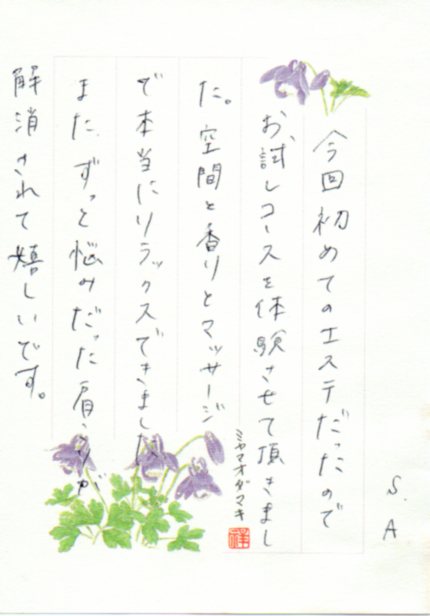 S.A
今回初めてのエステだったので
お試しコースを体験させて頂きまし
た。空間と香りとマッサージ
で本当にリラックスできました
また、ずっと悩みだった肩こりが
解消されて嬉しいです。
ミヤマオダマキ
祥